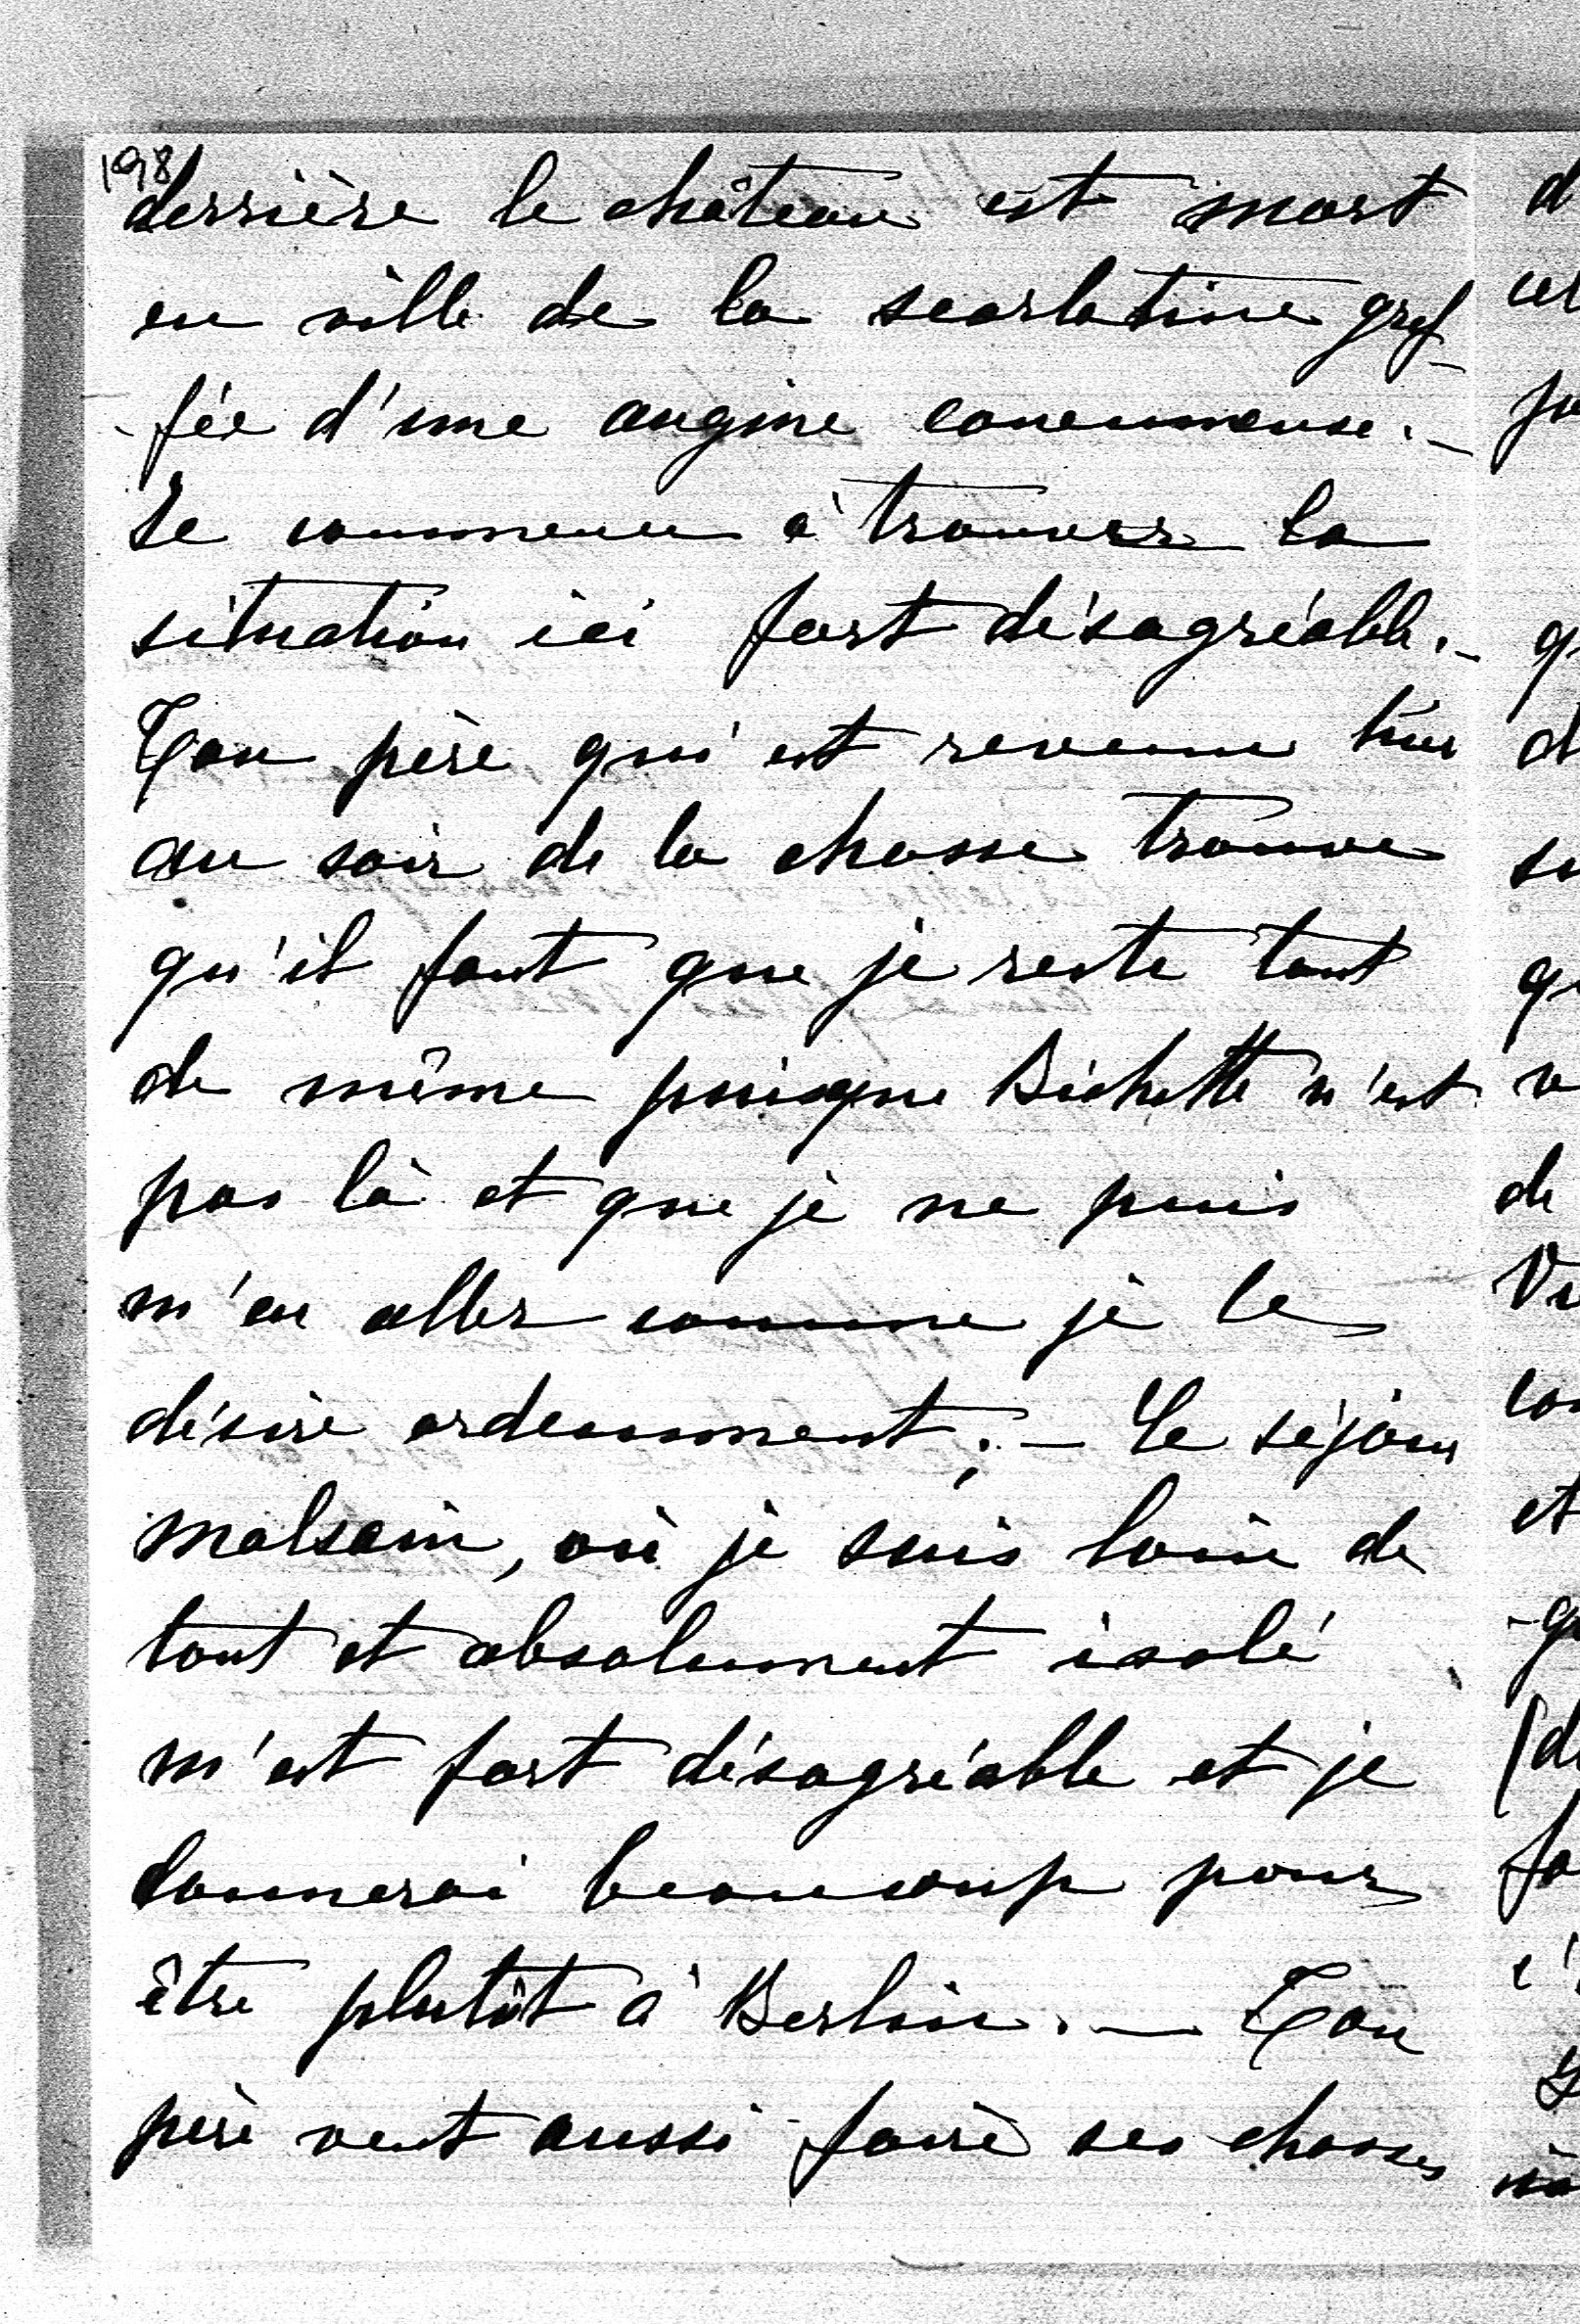 198
derrière le château est mort
en ville de la scarlatine gref
-fée d'une angine couenneuse. -
Je commence à trouver la
situation ici fort désagréable. -
Ton père qui est revenu hier
au soir de la chasse trouve
qu'il faut que je reste tout
de même puisque Bichette n'est
pas là et que je ne puis
m'en aller comme je le
désire ardemment; - Ce séjour
malsain, où je suis loin de
tout et absolument isolé
m'est fort désagréable et je
donnerai beaucoup pour
être plutôt à Berlin. - Ton
père veut aussi faire ses chasses